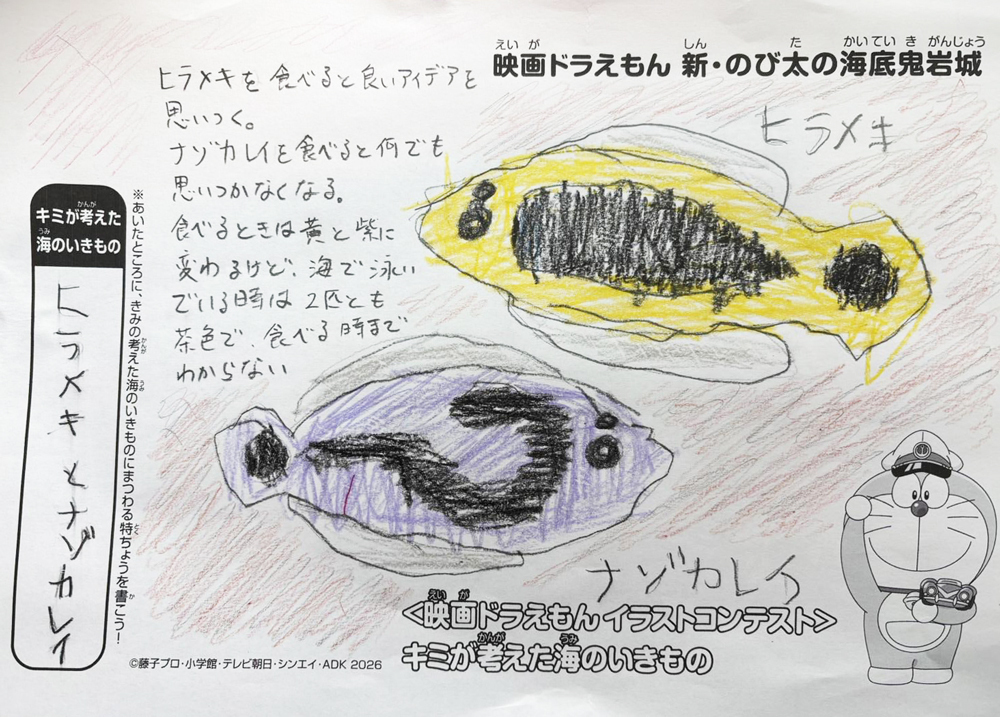 映画ドラえもん 新・のび太の海底鬼岩城
えい が しん た かいてい き がんじょう
ヒラメキを食べると良いアイデアを
思いつく。
ナゾカレイを食べると何でも
思いつかなくなる。
食べるときは黄と紫に
変わるけど、海で泳い
でいる時は2匹とも
茶色で、食べる時まで
わからない
ヒラメキ
ナゾカレイ
キミが考えた
かんが
海のいきもの
うみ
ヒラメキとナゾカレイ
※あいたところに、きみの考えた海のいきものにまつわる特ちょうを書こう!
かんが うみ とく か
<映画ドラえもん イラストコンテスト>
えい が
キミが考えた海のいきもの
かんが うみ
©藤子プロ・小学館・テレビ朝日・シンエイ・ADK 2026